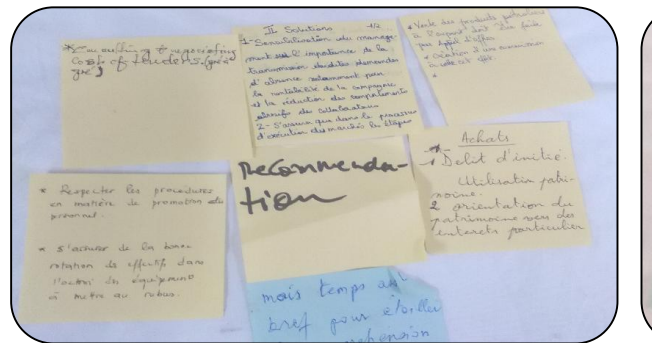 * Consulting & negociating
Costs of tenders (gré à
gré)
II Solutions 1/2
1- Sensibilisation du manage-
ment sur l'importance de la
transmission desdites demandes
d'absence notamment pour
la rentabilité de la compagnie
et la réduction des comportements
des collaborateurs
2- S'assurer que dans le processus
d'exécution des marchés les étapes
* Vente des produits pétroliers
à l'export doit être faite
par appel d'offre
* Création d'une commission
à cet effet.
*
Recommenda-
tion
Achats
- Delit d'initié.
Utilisation patri-
moine.
2 orientation du
patrimoine vers des
interets particulier
* Respecter les procédures
en matière de promotion du
personnel.
* S'assurer de la bonne
rotation des effectifs dans
l'achat des équipements
à mettre au rebus.
mais temps
bref pour étoiller